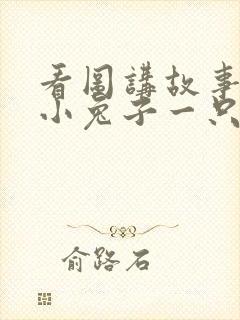 看圖講故事
小兔子一只
俞路石